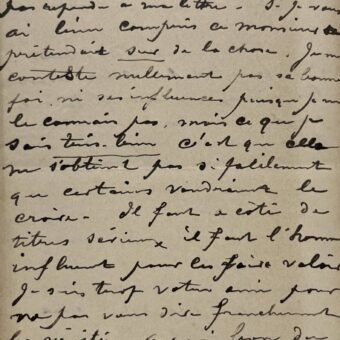 pas répondu à ma lettre. Si je vous
ai bien compris ce monsieur se
prétendait sur de la chose. Je ne
conteste nullement pas sa bonne
foi, ni ses influences puisque je ne
le connais pas, mais ce que je
sais très-bien c'est que cela
ne s'obtient pas si facilement
que certains voudraient le
croire. Il faut à côté de
titres sérieux il faut l'homme
influent pour les faire valoir
Je suis trop votre ami pour
ne pas vous dire franchement
la